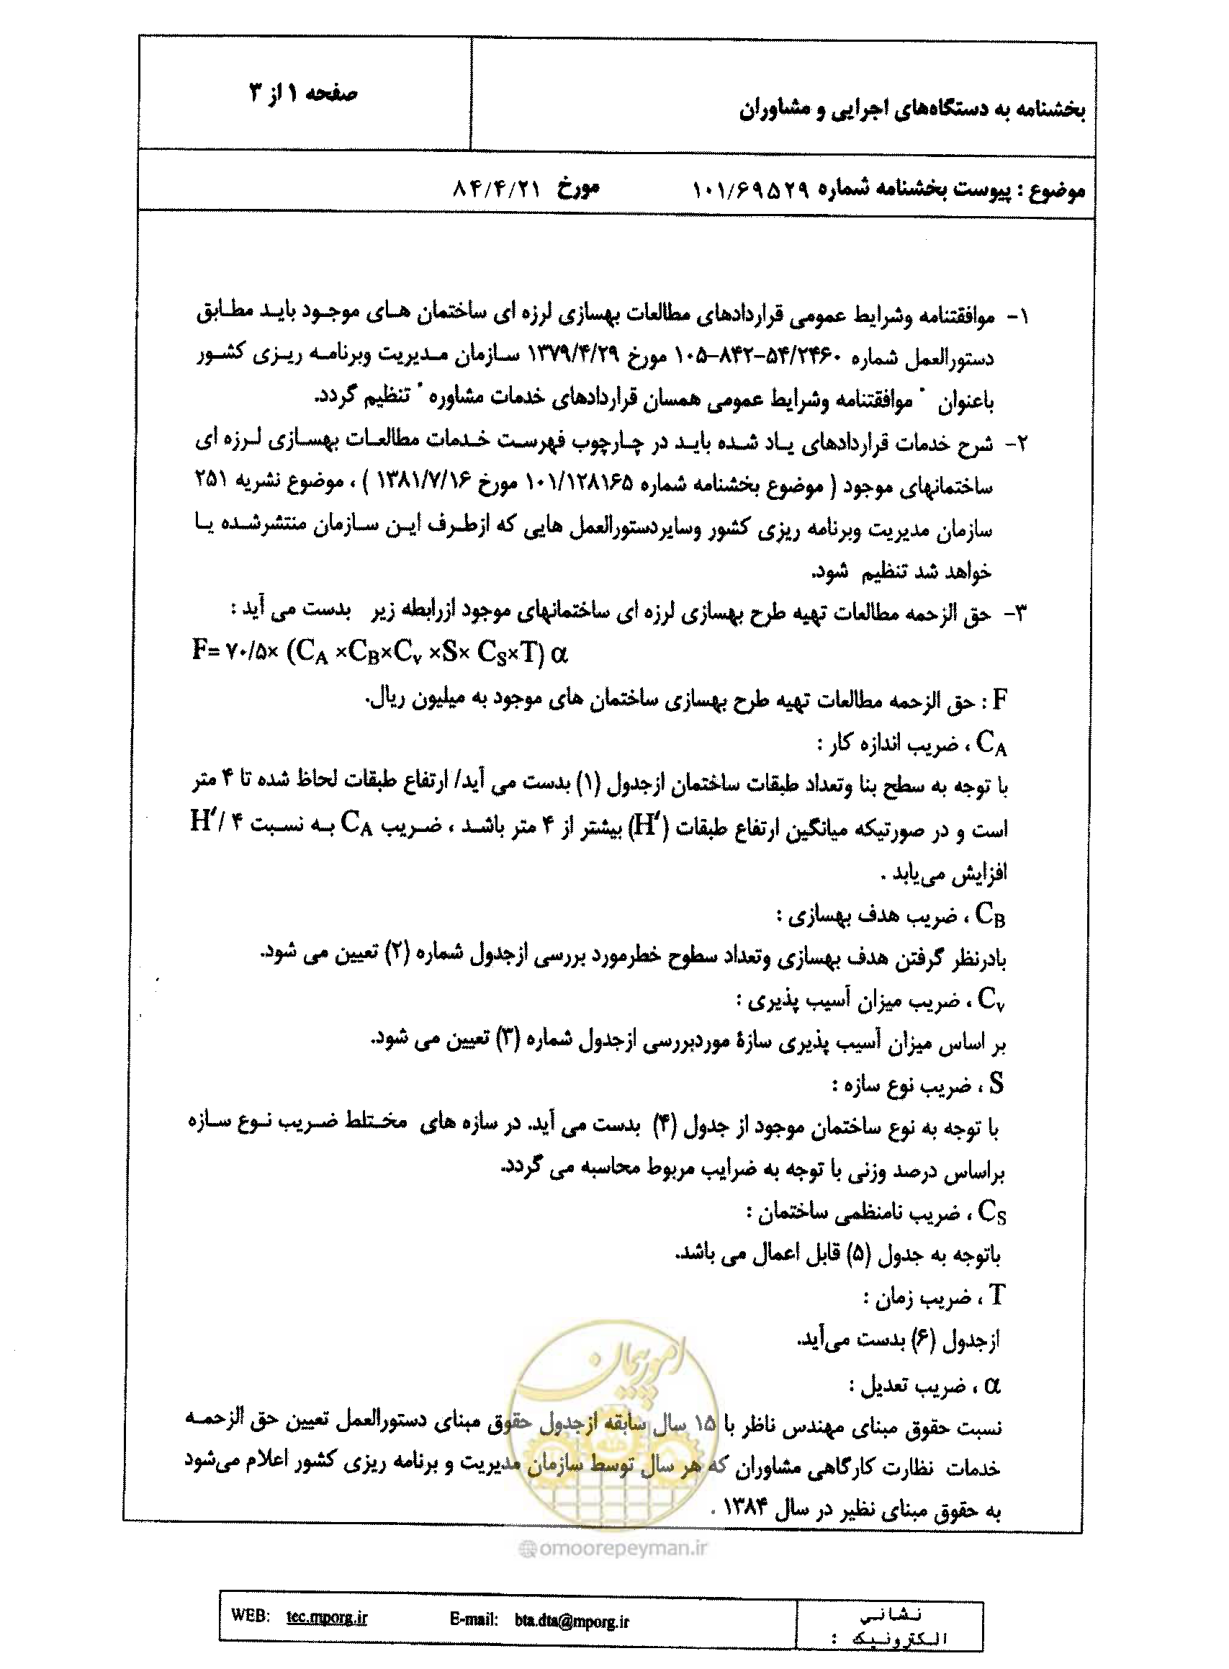 بخشنامه به دستگاه‌های اجرایی و مشاوران
صفحه ۱ از ۳
موضوع : پیوست بخشنامه شماره ۱۰۱/۶۹۵۲۹ مورخ ۸۴/۴/۲۱
۱- موافقتنامه وشرایط عمومی قراردادهای مطالعات بهسازی لرزه ای ساختمان های موجود باید مطابق
دستورالعمل شماره ۱۰۵-۸۴۲-۵۴/۲۴۶۰ مورخ ۱۳۷۹/۴/۲۹ سازمان مدیریت وبرنامه ریزی کشور
باعنوان " موافقتنامه وشرایط عمومی همسان قراردادهای خدمات مشاوره " تنظیم گردد.
۲- شرح خدمات قراردادهای یاد شده باید در چارچوب فهرست خدمات مطالعات بهسازی لرزه ای
ساختمانهای موجود ( موضوع بخشنامه شماره ۱۰۱/۱۲۸۱۶۵ مورخ ۱۳۸۱/۷/۱۶ ) ، موضوع نشریه ۲۵۱
سازمان مدیریت وبرنامه ریزی کشور وسایردستورالعمل هایی که ازطرف این سازمان منتشرشده یا
خواهد شد تنظیم شود.
۳- حق الزحمه مطالعات تهیه طرح بهسازی لرزه ای ساختمانهای موجود ازرابطه زیر بدست می آید :
F= ۷۰/۵× (C_A ×C_B×C_v ×S× C_S×T) α
F : حق الزحمه مطالعات تهیه طرح بهسازی ساختمان های موجود به میلیون ریال.
C_A ، ضریب اندازه کار :
با توجه به سطح بنا وتعداد طبقات ساختمان ازجدول (۱) بدست می آید/ ارتفاع طبقات لحاظ شده تا ۴ متر
است و در صورتیکه میانگین ارتفاع طبقات (H′) بیشتر از ۴ متر باشد ، ضریب C_A به نسبت H′/ ۴
افزایش می‌یابد .
C_B ، ضریب هدف بهسازی :
بادرنظر گرفتن هدف بهسازی وتعداد سطوح خطرمورد بررسی ازجدول شماره (۲) تعیین می شود.
C_v ، ضریب میزان آسیب پذیری :
بر اساس میزان آسیب پذیری سازۀ موردبررسی ازجدول شماره (۳) تعیین می شود.
S ، ضریب نوع سازه :
با توجه به نوع ساختمان موجود از جدول (۴) بدست می آید. در سازه های مختلط ضریب نوع سازه
براساس درصد وزنی با توجه به ضرایب مربوط محاسبه می گردد.
C_S ، ضریب نامنظمی ساختمان :
باتوجه به جدول (۵) قابل اعمال می باشد.
T ، ضریب زمان :
ازجدول (۶) بدست می‌آید.
α ، ضریب تعدیل :
نسبت حقوق مبنای مهندس ناظر با ۱۵ سال سابقه ازجدول حقوق مبنای دستورالعمل تعیین حق الزحمه
خدمات نظارت کارگاهی مشاوران که هر سال توسط سازمان مدیریت و برنامه ریزی کشور اعلام می‌شود
به حقوق مبنای نظیر در سال ۱۳۸۴ .
امور پیمان
omoorepeyman.ir
نشانی
الکترونیک :
E-mail: bta.dta@mporg.ir
WEB: tec.mporg.ir